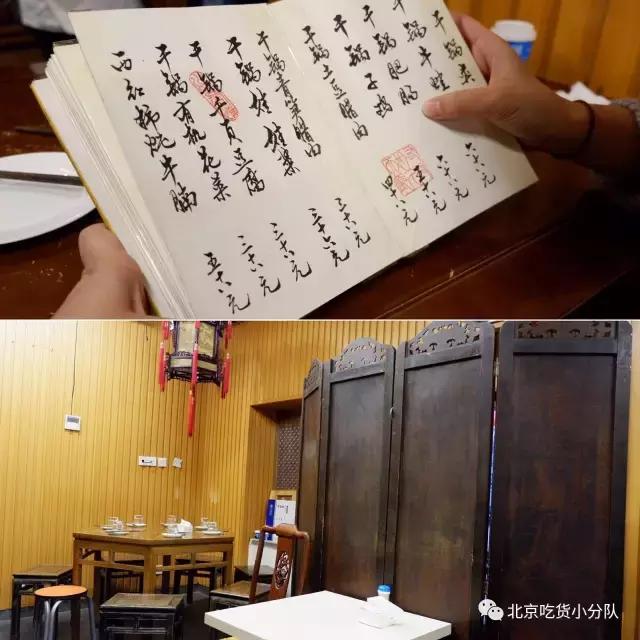 干锅
干锅牛蛙
干锅肥肠
干锅子鸡
干锅土豆腊肉
六十八元
六十八元
五十八元
四十八元
干锅青笋腊肉
干锅娃娃菜
干锅千页豆腐
干锅有机花菜
西红柿炖牛腩
三十八元
三十八元
三十八元
三十八元
五十八元
北京吃货小分队